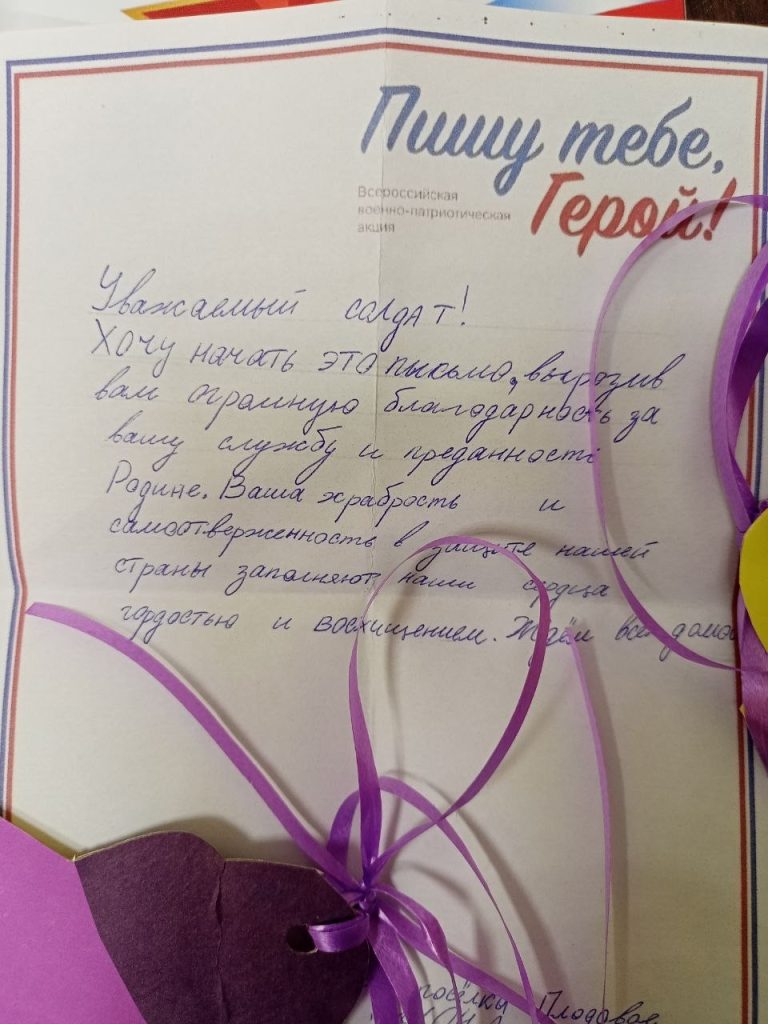 Пишу тебе,
Герой!
Всероссийская
военно-патриотическая
акция
Уважаемый солдат!
Хочу начать это пысьмо, выразив
вам огромную благодарность за
вашу службу и преданность
Родине. Ваша храбрость и
самоотверженность в защите нашей
страны заполняют наши сердца
гордостью и восхищением. Ждём вас домой
посёлку Плодовое